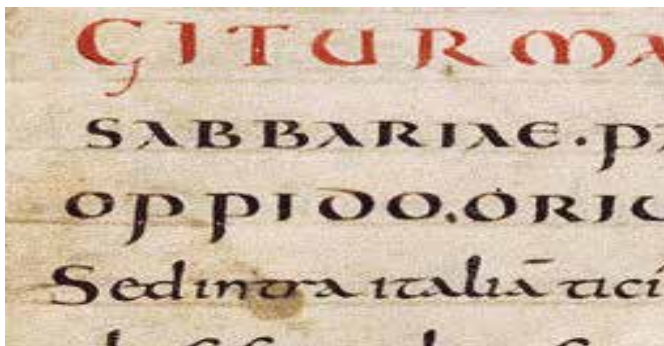 GITUR MA
SABBARIAE. PA
OPPIDO. ORIU
Sed intra italiā tici